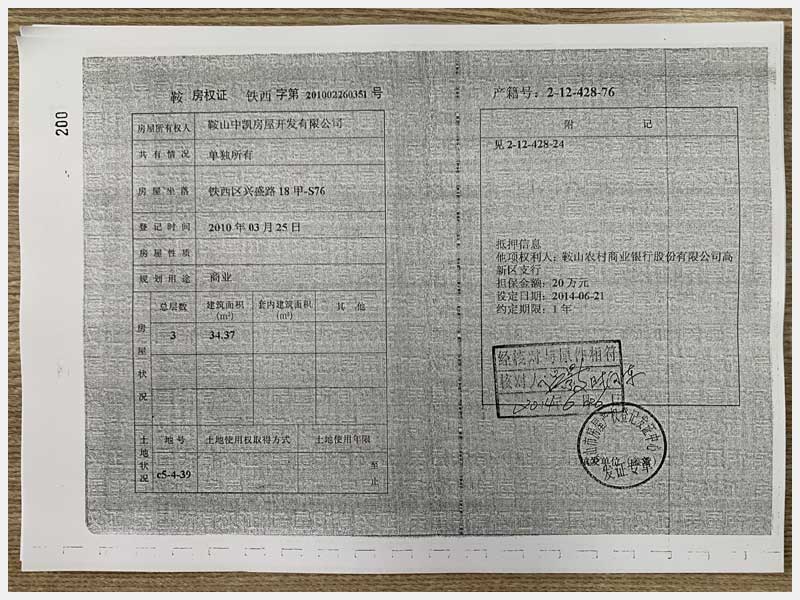 200
鞍 房权证 铁西 字第 201002260351 号
房屋所有权人 鞍山中凯房屋开发有限公司
共有情况 单独所有
房屋坐落 铁西区兴盛路18甲-S76
登记时间 2010年03月25日
房屋性质
规划用途 商业
房屋状况
总层数 建筑面积(m²) 套内建筑面积(m²) 其他
3 34.37
土地状况
地号 土地使用权取得方式 土地使用年限
c5-4-39 至 止
产籍号：2-12-428-76
附 记
见2-12-428-24
抵押信息
他项权利人：鞍山农村商业银行股份有限公司高
新区支行
担保金额：20万元
设定日期：2014-06-21
约定期限：1年
经核对与原件相符
核对人
2014年6月
山市房屋产权登记发证中心
填发单位（盖章）
发证专章